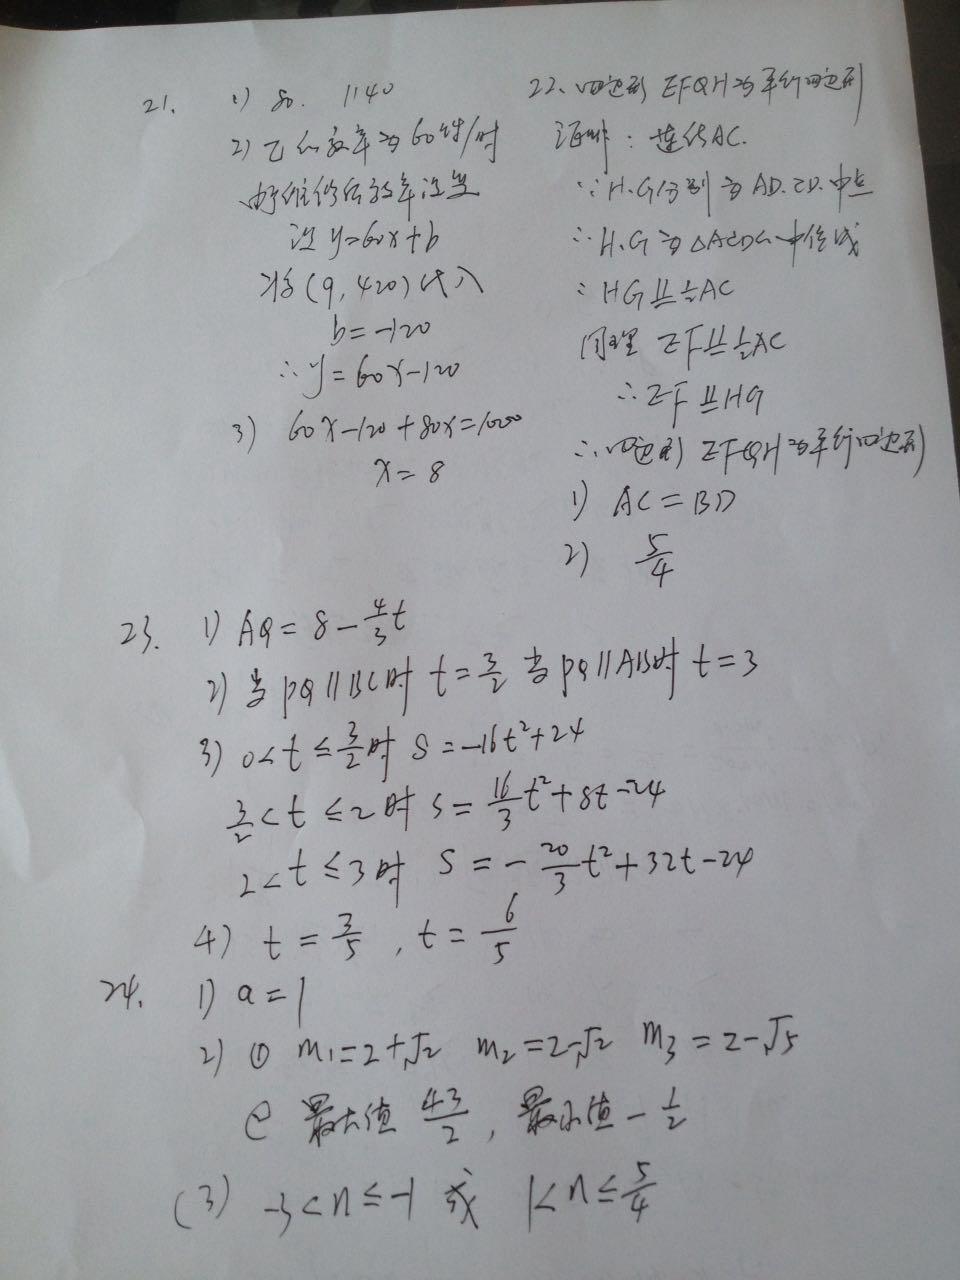 21. 1) 80. 1140
2) 乙的效率为60件/时
好维修后效率没变
设 y=60x+b
将(9,420)代入
b=-120
∴y=60x-120
3) 60x-120+80x=1000
x=8
22、四边形 EFGH为平行四边形
证明：连结AC.
∵H.G分别为AD.CD.中点
∴H.G为△ACD的中位线
∴HG∥=½AC
同理 EF∥=½AC
∴EF∥=HG
∴四边形 EFGH为平行四边形
1) AC=BD
2) 5/4
23. 1) AQ=8-4/3t
2) 当PQ∥BC时 t=3/2 当PQ∥AB时 t=3
3) 0<t≤3/2时 S=-16t²+24
3/2<t≤2时 S=16/3t²+8t-24
2<t≤3时 S=-20/3t²+32t-24
4) t=3/5, t=6/5
24. 1) a=1
2) ① m₁=2+√2 m₂=2-√2 m₃=2-√5
② 最大值 43/2, 最小值-1/2
(3) -3<n≤-1 或 1<n≤5/4